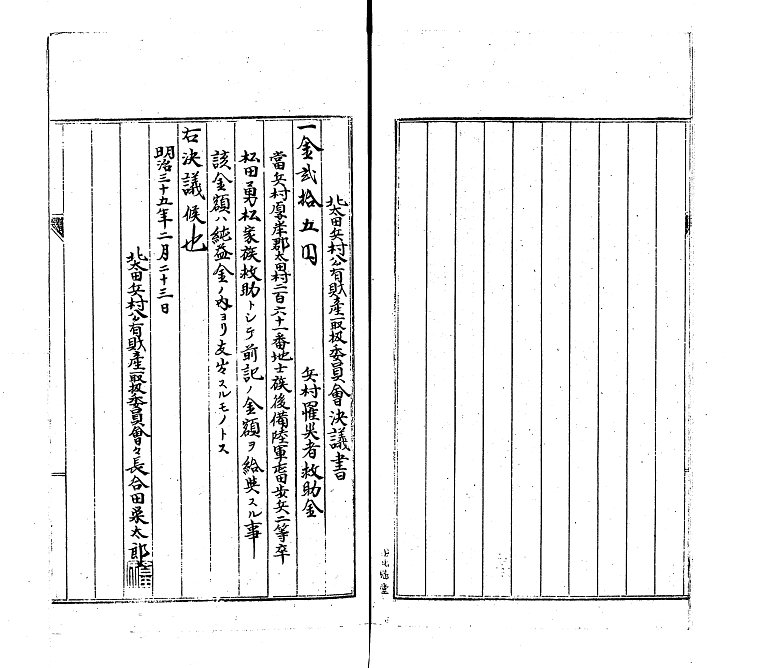 北太田兵村公有財産取扱委員會決議書
一金弐拾五円 兵村罹災者救助金
當兵村厚岸郡太田村二百六十一番地士族後備陸軍屯田歩兵二等卒
松田勇松家族救助トシテ前記ノ金額ヲ給與スル事
該金額ハ純益金ノ内ヨリ支出スルモノトス
右決議候也
明治三十五年二月二十三日
北太田兵村公有財産取扱委員會々長合田栄太郎